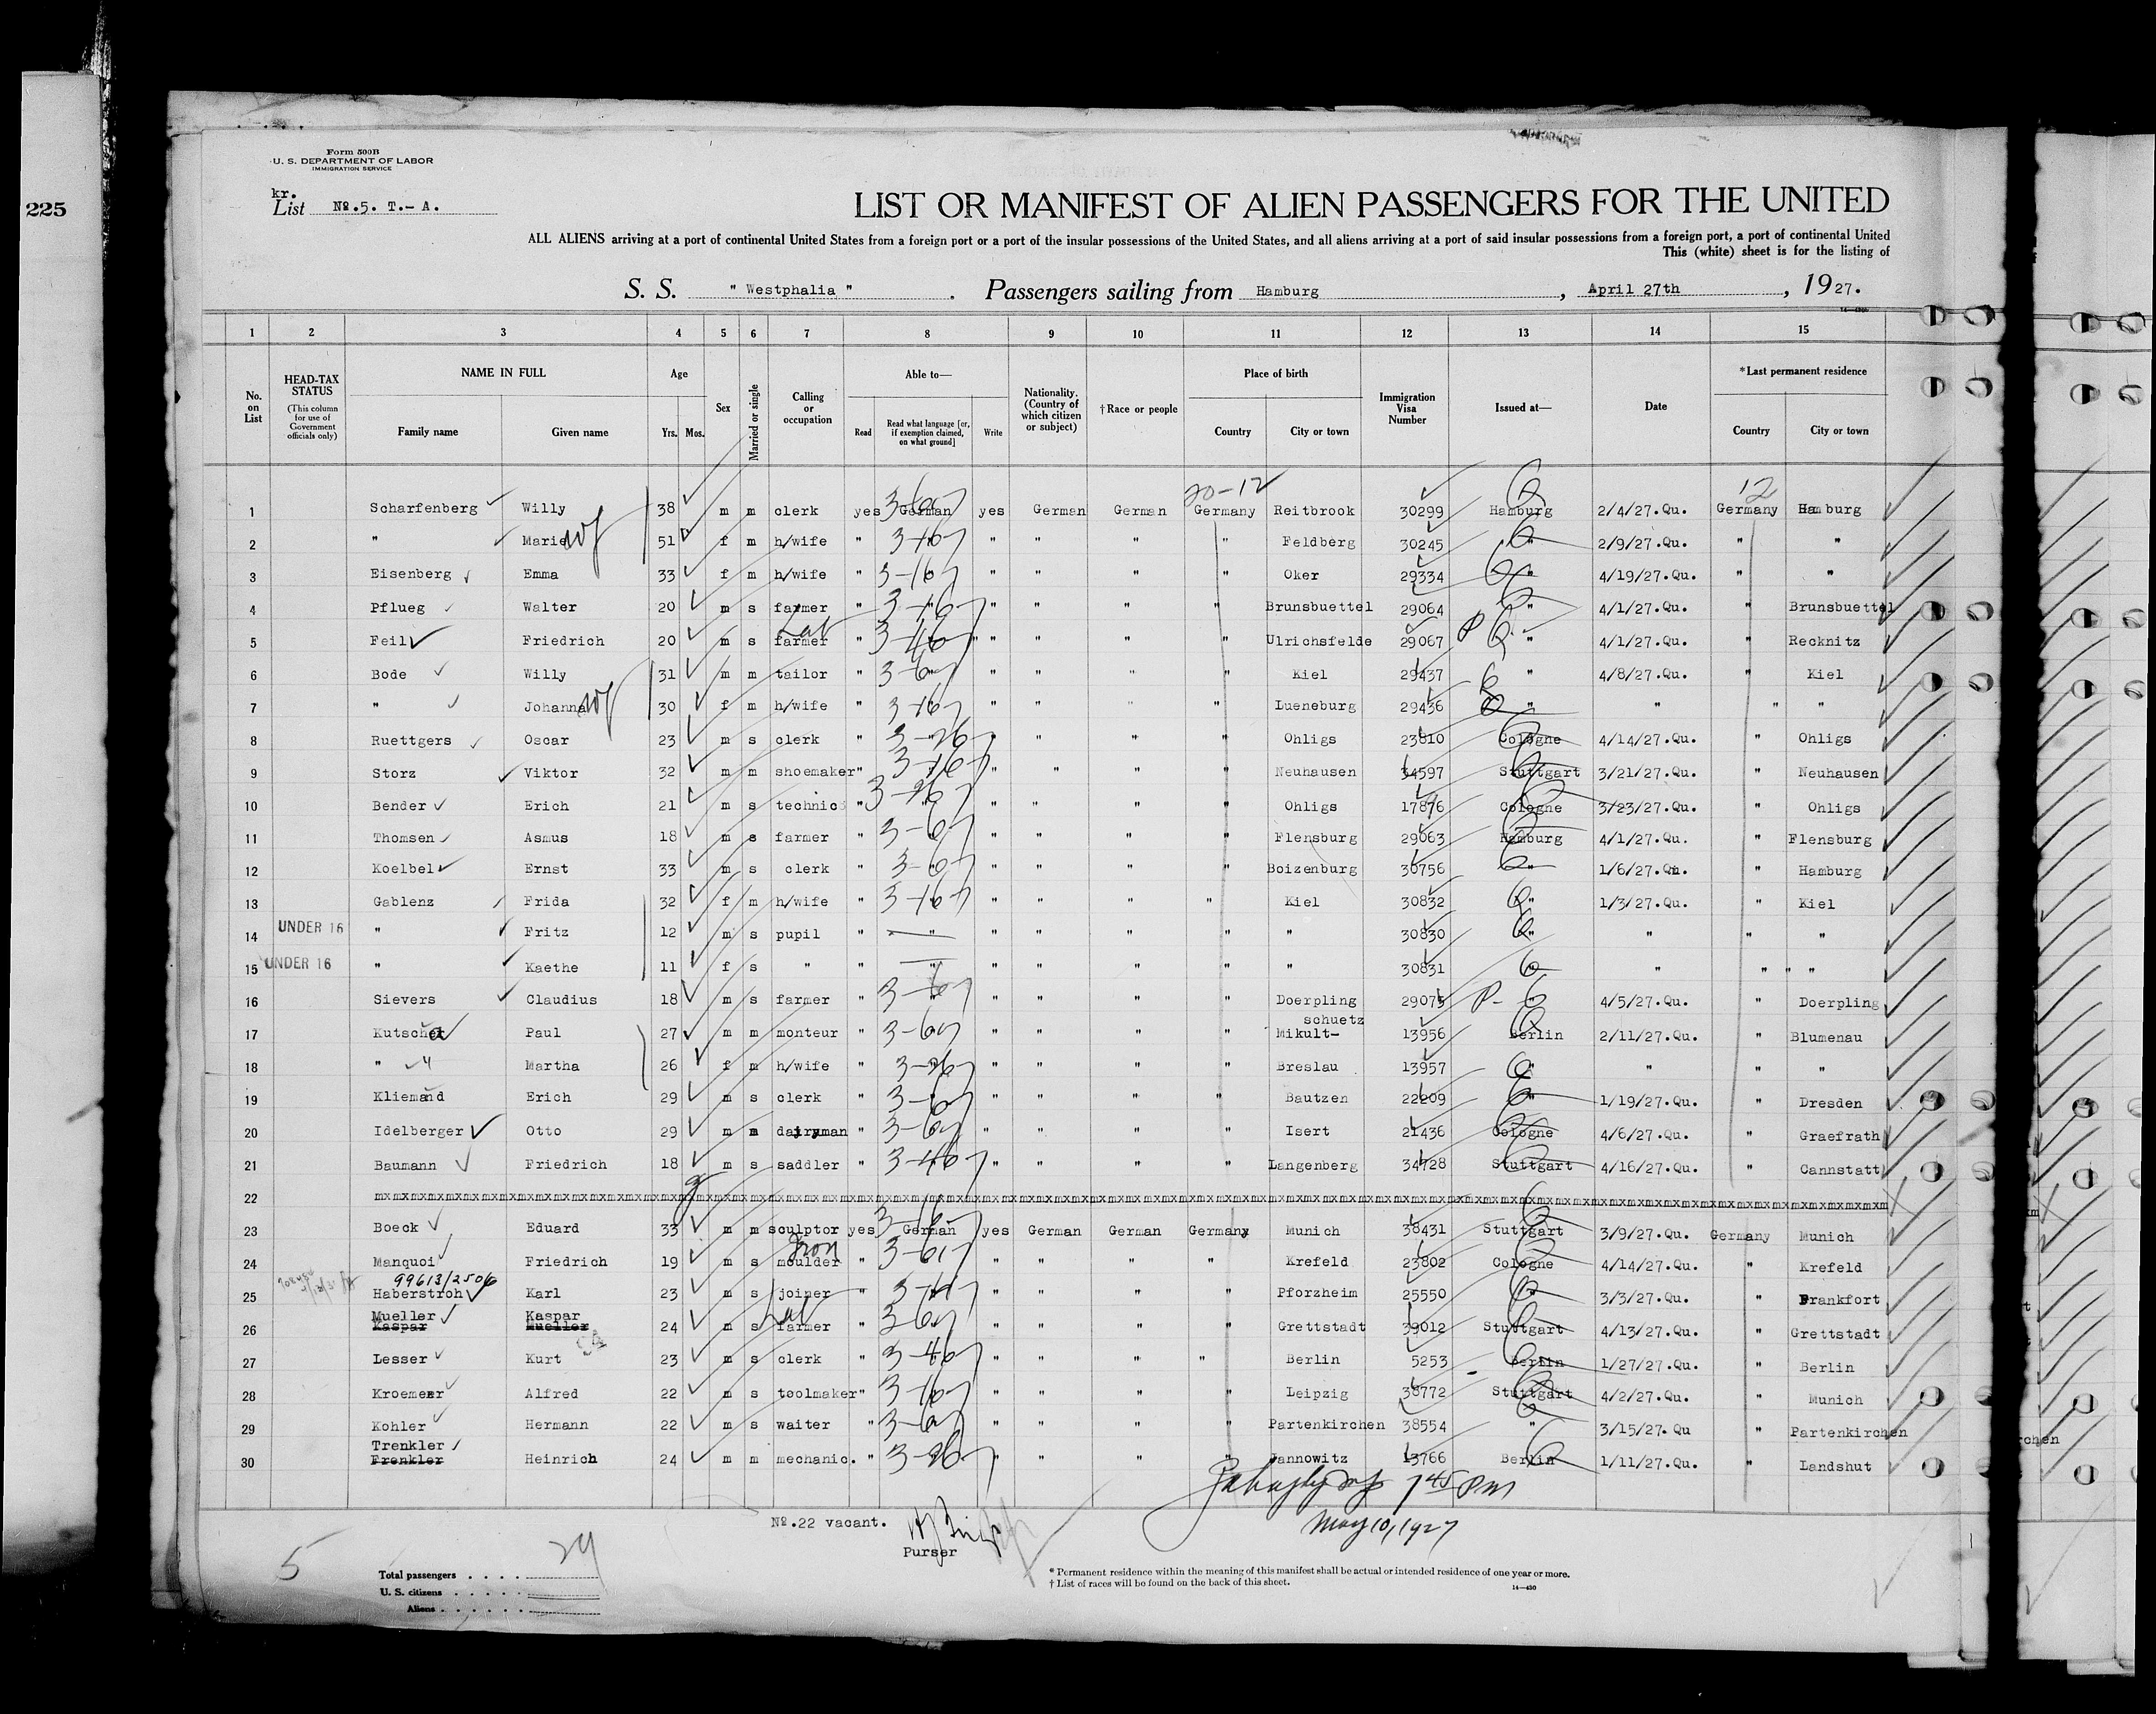 225
Form 500B
U. S. DEPARTMENT OF LABOR
IMMIGRATION SERVICE
kr.
List No.5. T.- A.
LIST OR MANIFEST OF ALIEN PASSENGERS FOR THE UNITED
ALL ALIENS arriving at a port of continental United States from a foreign port or a port of the insular possessions of the United States, and all aliens arriving at a port of said insular possessions from a foreign port, a port of continental United
This (white) sheet is for the listing of
S. S. " Westphalia " . Passengers sailing from Hamburg , April 27th , 1927.
1 2 3 4 5 6 7 8 9 10 11 12 13 14 15
No. on List
HEAD-TAX STATUS (This column for use of Government officials only)
NAME IN FULL
Family name Given name
Age Yrs. Mos.
Sex
Married or single
Calling or occupation
Able to— Read Read what language [or, if exemption claimed, on what ground] Write
Nationality. (Country of which citizen or subject)
†Race or people
Place of birth Country City or town
Immigration Visa Number
Issued at—
Date
*Last permanent residence Country City or town
20-12 12
1 Scharfenberg Willy 38 m m clerk yes German yes German German Germany Reitbrook 30299 Hamburg 2/4/27.Qu. Germany Hamburg
2 " Marie wf 51 f m h/wife " " " " " " Feldberg 30245 " 2/9/27.Qu. " "
3 Eisenberg Emma 33 f m h/wife " " " " " " Oker 29334 " 4/19/27.Qu. " "
4 Pflueg Walter 20 m s farmer " " " " " " Brunsbuettel 29064 " 4/1/27.Qu. " Brunsbuettel
5 Feil Friedrich 20 m s farmer Lab " " " " " " Ulrichsfelde 29067 P " 4/1/27.Qu. " Recknitz
6 Bode Willy 31 m m tailor " " " " " " Kiel 29437 " 4/8/27.Qu. " Kiel
7 " Johanna wf 30 f m h/wife " " " " " " Lueneburg 29436 " " " "
8 Ruettgers Oscar 23 m s clerk " " " " " " Ohligs 23810 Cologne 4/14/27.Qu. " Ohligs
9 Storz Viktor 32 m m shoemaker " " " " " " Neuhausen 34597 Stuttgart 3/21/27.Qu. " Neuhausen
10 Bender Erich 21 m s technic " " " " " " Ohligs 17876 Cologne 3/23/27.Qu. " Ohligs
11 Thomsen Asmus 18 m s farmer " " " " " " Flensburg 29063 Hamburg 4/1/27.Qu. " Flensburg
12 Koelbel Ernst 33 m s clerk " " " " " " Boizenburg 30756 " 1/6/27.Qu. " Hamburg
13 Gablenz Frida 32 f m h/wife " " " " " " Kiel 30832 " 1/3/27.Qu. " Kiel
14 UNDER 16 " Fritz 12 m s pupil " " " " " " " 30830 " " " "
15 UNDER 16 " Kaethe 11 f s " " " " " " " " 30831 " " " "
16 Sievers Claudius 18 m s farmer " " " " " " Doerpling 29075 P- " 4/5/27.Qu. " Doerpling
17 Kutscha Paul 27 m m monteur " " " " " " Mikult-schuetz 13956 Berlin 2/11/27.Qu. " Blumenau
18 " Martha 26 f m h/wife " " " " " " Breslau 13957 " " " "
19 Kliemand Erich 29 m s clerk " " " " " " Bautzen 22209 " 1/19/27.Qu. " Dresden
20 Idelberger Otto 29 m m dairyman " " " " " " Isert 21436 Cologne 4/6/27.Qu. " Graefrath
21 Baumann Friedrich 18 m s saddler " " " " " " Langenberg 34728 Stuttgart 4/16/27.Qu. " Cannstatt
22
23 Boeck Eduard 33 m m sculptor yes German yes German German Germany Munich 38431 Stuttgart 3/9/27.Qu. Germany Munich
24 Manquoi Friedrich 19 m s Iron moulder " " " " " " Krefeld 23802 Cologne 4/14/27.Qu. " Krefeld
99613/2506
25 Haberstroh Karl 23 m s joiner " " " " " " Pforzheim 25550 " 3/3/27.Qu. " Frankfort
Mueller Kaspar
26 Kaspar Mueller 24 m s farmer Lab " " " " " " Grettstadt 39012 Stuttgart 4/13/27.Qu. " Grettstadt
27 Lesser Kurt 23 m s clerk " " " " " " Berlin 5253 Berlin 1/27/27.Qu. " Berlin
28 Kroemer Alfred 22 m s toolmaker " " " " " " Leipzig 38772 Stuttgart 4/2/27.Qu. " Munich
29 Kohler Hermann 22 m s waiter " " " " " " Partenkirchen 38554 " 3/15/27.Qu " Partenkirchen
Trenkler
30 Frenkler Heinrich 24 m m mechanic. " " " " " " Jannowitz 13766 Berlin 1/11/27.Qu. " Landshut
7 45 PM
May 10, 1927
No.22 vacant.
Purser
5
Total passengers . . . . 29
U. S. citizens . . . . .
Aliens . . . . . .
* Permanent residence within the meaning of this manifest shall be actual or intended residence of one year or more.
† List of races will be found on the back of this sheet.
14—430